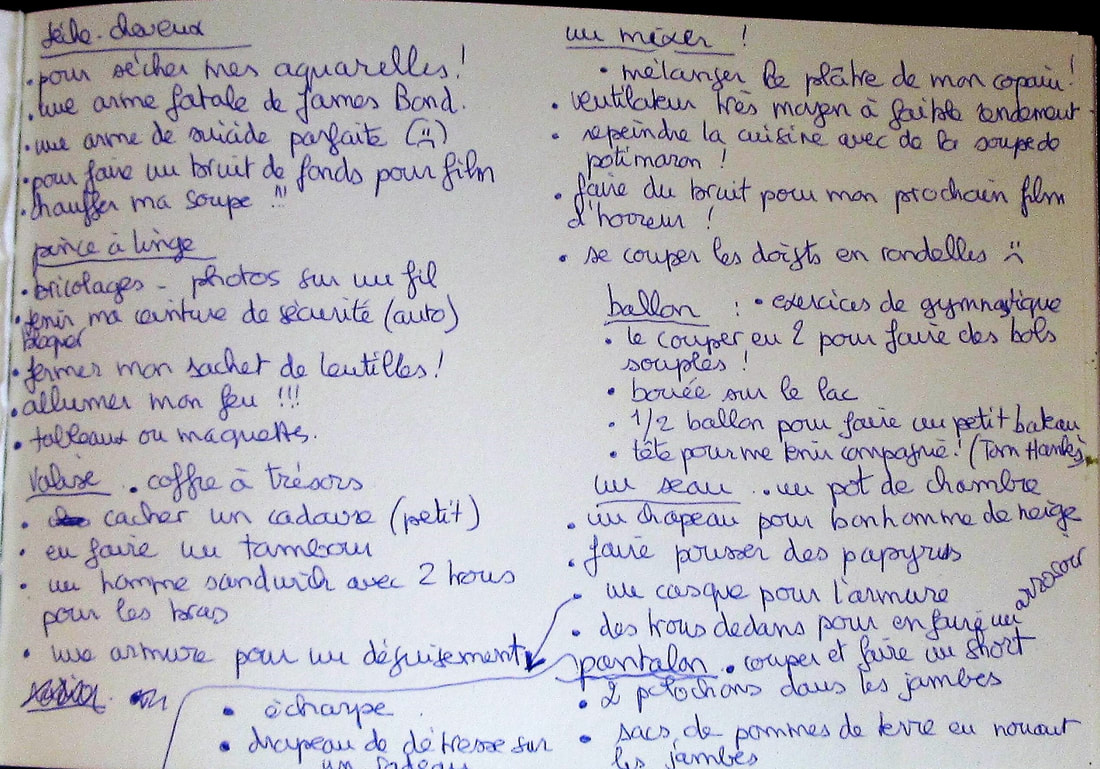 sèche-cheveux
• pour sécher mes aquarelles !
• une arme fatale de James Bond.
• une arme de suicide parfaite (:()
• pour faire un bruit de fonds pour film
• chauffer ma soupe !!!
pince à linge
• bricolages - photos sur un fil
• tenir ma ceinture de sécurité (auto)
bloquer
• fermer mon sachet de lentilles !
• allumer mon feu !!!
• tableaux ou maquettes.
Valise . coffre à trésors
• cacher un cadavre (petit)
• en faire un tambour
• un homme sandwich avec 2 trous
pour les bras
• une armure pour un déguisement
un mixer !
• mélanger le plâtre de mon copain !
• ventilateur très moyen à faible rendement
• repeindre la cuisine avec de la soupe de
potimaron !
• faire du bruit pour mon prochain film
d'horreur !
• se couper les doigts en rondelles :(
ballon : • exercices de gymnastique
• le couper en 2 pour faire des bols
souples !
• bouée sur le lac
• 1/2 ballon pour faire un petit bateau
• tête pour me tenir compagnie ! (Tom Hanks)
un seau .. un pot de chambre
• un chapeau pour bonhomme de neige
• faire pousser des papyrus
• un casque pour l'armure
• des trous dedans pour en faire un arrosoir
pantalon . couper et faire un short
• 2 polochons dans les jambes
• sacs de pommes de terre en nouant
les jambes
• écharpe
• drapeau de détresse sur
un radeau